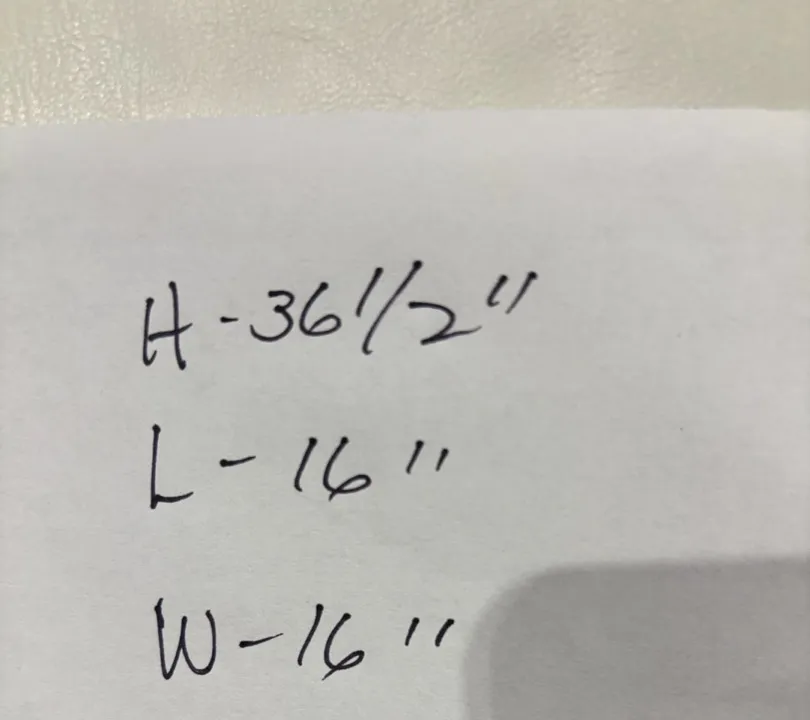 H - 36 1/2 "
L - 16 "
W - 16 "